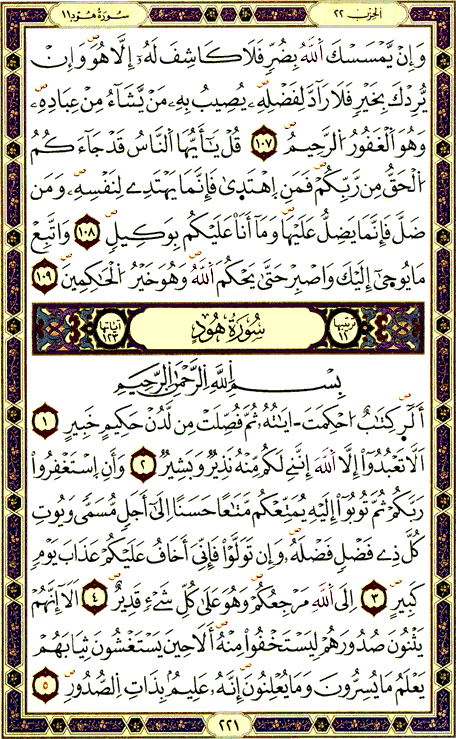 سُورَةُ هُود ١١ الحِزب ٢٢
وَإِنْ يَّمْسَسْكَ اَللَّهُ بِضُرٍّ فَلَا كَاشِفَ لَهُۥٓ إِلَّا هُوَ وَإِنْ
يُّرِدْكَ بِخَيْرٍ فَلَا رَآدَّ لِفَضْلِهِۦ يُصِيبُ بِهِۦ مَنْ يَّشَآءُ مِنْ عِبَادِهِۦ
وَهُوَ اَلْغَفُورُ اُلرَّحِيمُ ١٠٧ قُلْ يَٰٓأَيُّهَا اَلنَّاسُ قَدْ جَآءَكُمُ
اُلْحَقُّ مِن رَّبِّكُمْ فَمَنِ اِهْتَدىٰ فَإِنَّمَا يَهْتَدِے لِنَفْسِهِۦ وَمَن
ضَلَّ فَإِنَّمَا يَضِلُّ عَلَيْهَا وَمَآ أَنَا۠ عَلَيْكُم بِوَكِيلٍ ١٠٨ وَاتَّبِعْ
مَا يُوحىٰٓ إِلَيْكَ وَاصْبِرْ حَتَّىٰ يَحْكُمَ اَللَّهُ وَهُوَ خَيْرُ اُلْحَٰكِمِينَ ١٠٩
ترتيبها ١١ سُورَةُ هُودٍ آياتها ١٢٣
بِسْمِ اِللَّهِ اِلرَّحْمَٰنِ اِلرَّحِيمِ
أَلَٓر كِتَٰبٌ اُحْكِمَتَ ءَايَٰتُهُۥ ثُمَّ فُصِّلَتْ مِن لَّدُنْ حَكِيمٍ خَبِيرٍ ١
اَلَّا تَعْبُدُوٓا۟ إِلَّا اَللَّهَ إِنَّنِے لَكُم مِّنْهُ نَذِيرٌ وَبَشِيرٌ ٢ وَأَنِ اِسْتَغْفِرُوا۟
رَبَّكُمْ ثُمَّ تُوبُوٓا۟ إِلَيْهِ يُمَتِّعْكُم مَّتَٰعًا حَسَنًا اِلَىٰٓ أَجَلٍ مُّسَمًّى وَيُوتِ
كُلَّ ذِے فَضْلٍ فَضْلَهُۥ وَإِن تَوَلَّوْا۟ فَإِنِّيَ أَخَافُ عَلَيْكُمْ عَذَابَ يَوْمٍ
كَبِيرٍ ٣ اِلَى اَللَّهِ مَرْجِعُكُمْ وَهُوَ عَلَىٰ كُلِّ شَےْءٍ قَدِيرٌ ٤ اَلَآ إِنَّهُمْ
يَثْنُونَ صُدُورَهُمْ لِيَسْتَخْفُوا۟ مِنْهُ أَلَا حِينَ يَسْتَغْشُونَ ثِيَابَهُمْ
يَعْلَمُ مَا يُسِرُّونَ وَمَا يُعْلِنُونَ إِنَّهُۥ عَلِيمٌۢ بِذَاتِ اِلصُّدُورِ ٥
٢٢١